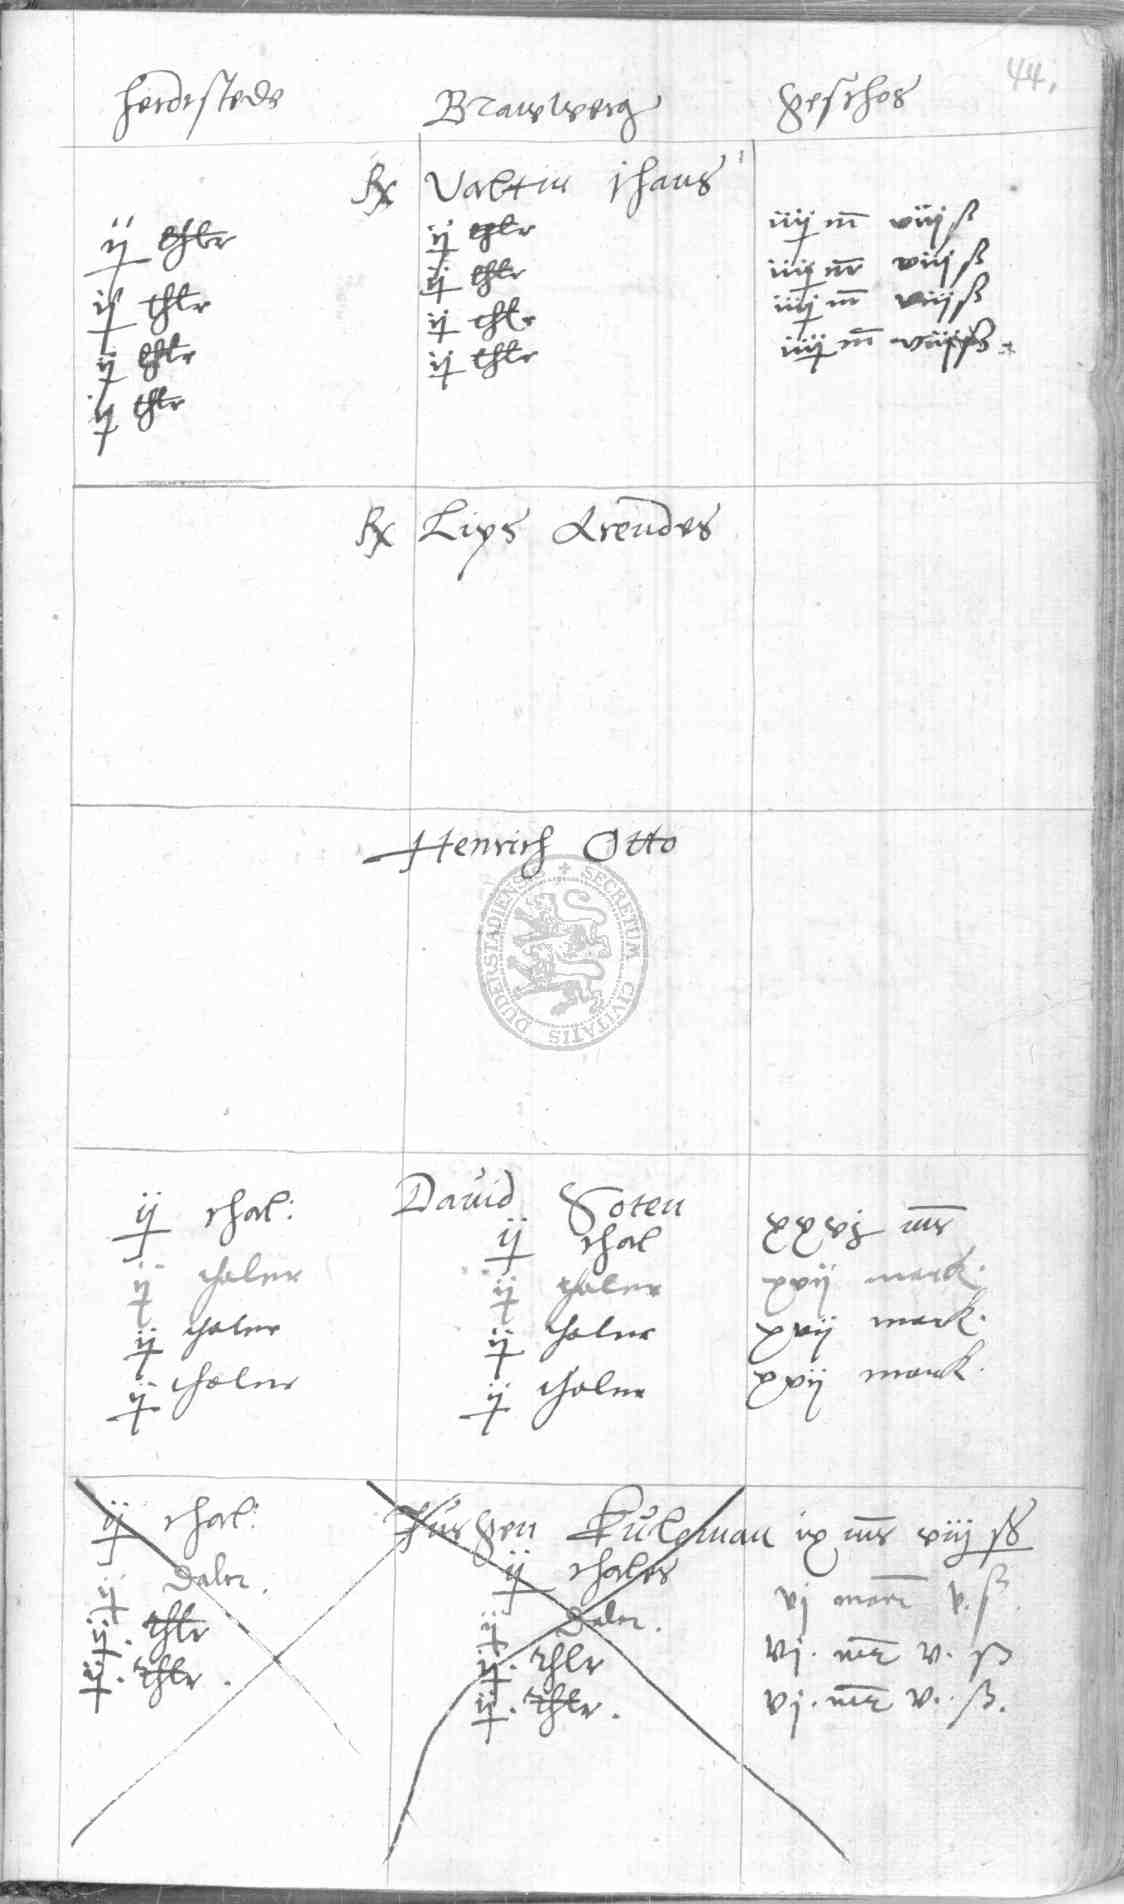 44.
herdtstede Brauwerg geschos
Rx Valtin Jhans
ij thlr ij thlr iiij m viij ß
ij thlr ij thlr iiij m viij ß
ij thlr ij thlr iiij m viij ß
ij thlr ij thlr iiij m viij ß
Rx Lips Arendes
Henrich Otto
SECRETUM CIVITATIS DUDERSTADIENSIS
David Goten
ij thal: ij thal xxvj mr
ij thaler ij thaler xvij mark.
ij thaler ij thaler xvij mark.
ij thaler ij thaler xxvij mark.
ij thal: Kuleman ix mr xiij ß
ij thaler
ij Daler. ij Daler. vj mark v. ß
ij. thlr ij. thlr vj. mr v. ß
ij. thlr. ij. thlr. vj. mr v. ß.